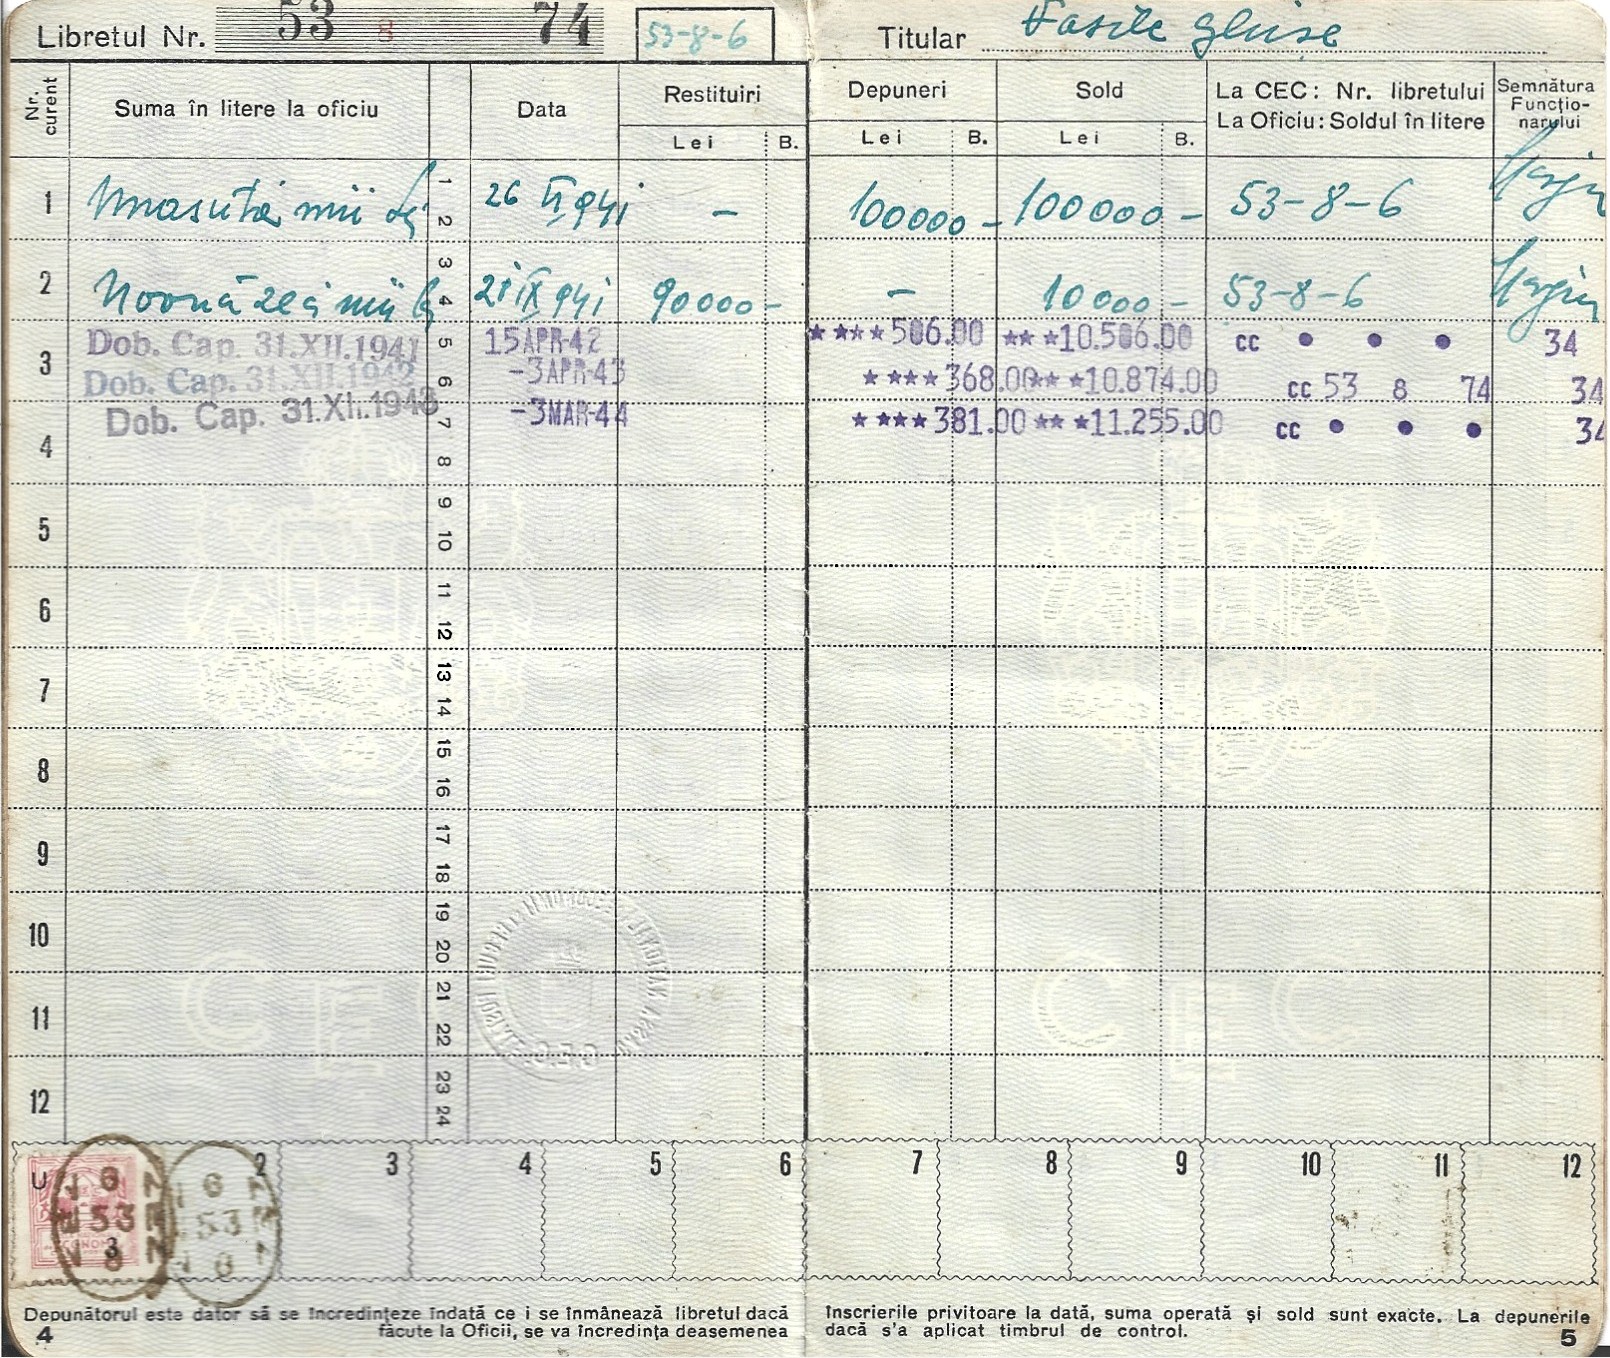 Libretul Nr. 53 8 74 53-8-6 Titular Vasile Ghise
Nr. curent Suma în litere la oficiu Data Restituiri Depuneri Sold La CEC: Nr. libretului Semnătura
La Oficiu: Soldul în litere Funcțio-
narului
Lei B. Lei B. Lei B.
1 Unasută mii 1 2 26 941 – 100000 – 100000 – 53-8-6
2 Nouăzeci mii 3 4 21 IX 941 90000 – – 10000 – 53-8-6
3 Dob. Cap. 31.XII.1941 5 15 APR-42 ★★★★506.00 ★★★10.506.00 cc ● ● ● 34
Dob. Cap. 31.XII.1942 6 -3 APR-43 ★★★★368.00 ★★★10.874.00 cc 53 8 74 34
4 Dob. Cap. 31.XII.1943 7 -3 MAR-44 ★★★★381.00 ★★★11.255.00 cc ● ● ● 34
8
5 9 10
6 11 12
7 13 14
8 15 16
9 17 18
10 19 20
11 21 22
12 23 24
C E C C E C
C.E.C.
2 3 4 5 6 7 8 9 10 11 12
U 6 53 3 6 53
Depunătorul este dator să se încredințeze îndată ce i se înmânează libretul dacă înscrierile privitoare la dată, suma operată și sold sunt exacte. La depunerile
4 făcute la Oficii, se va încredința deasemenea dacă s'a aplicat timbrul de control. 5